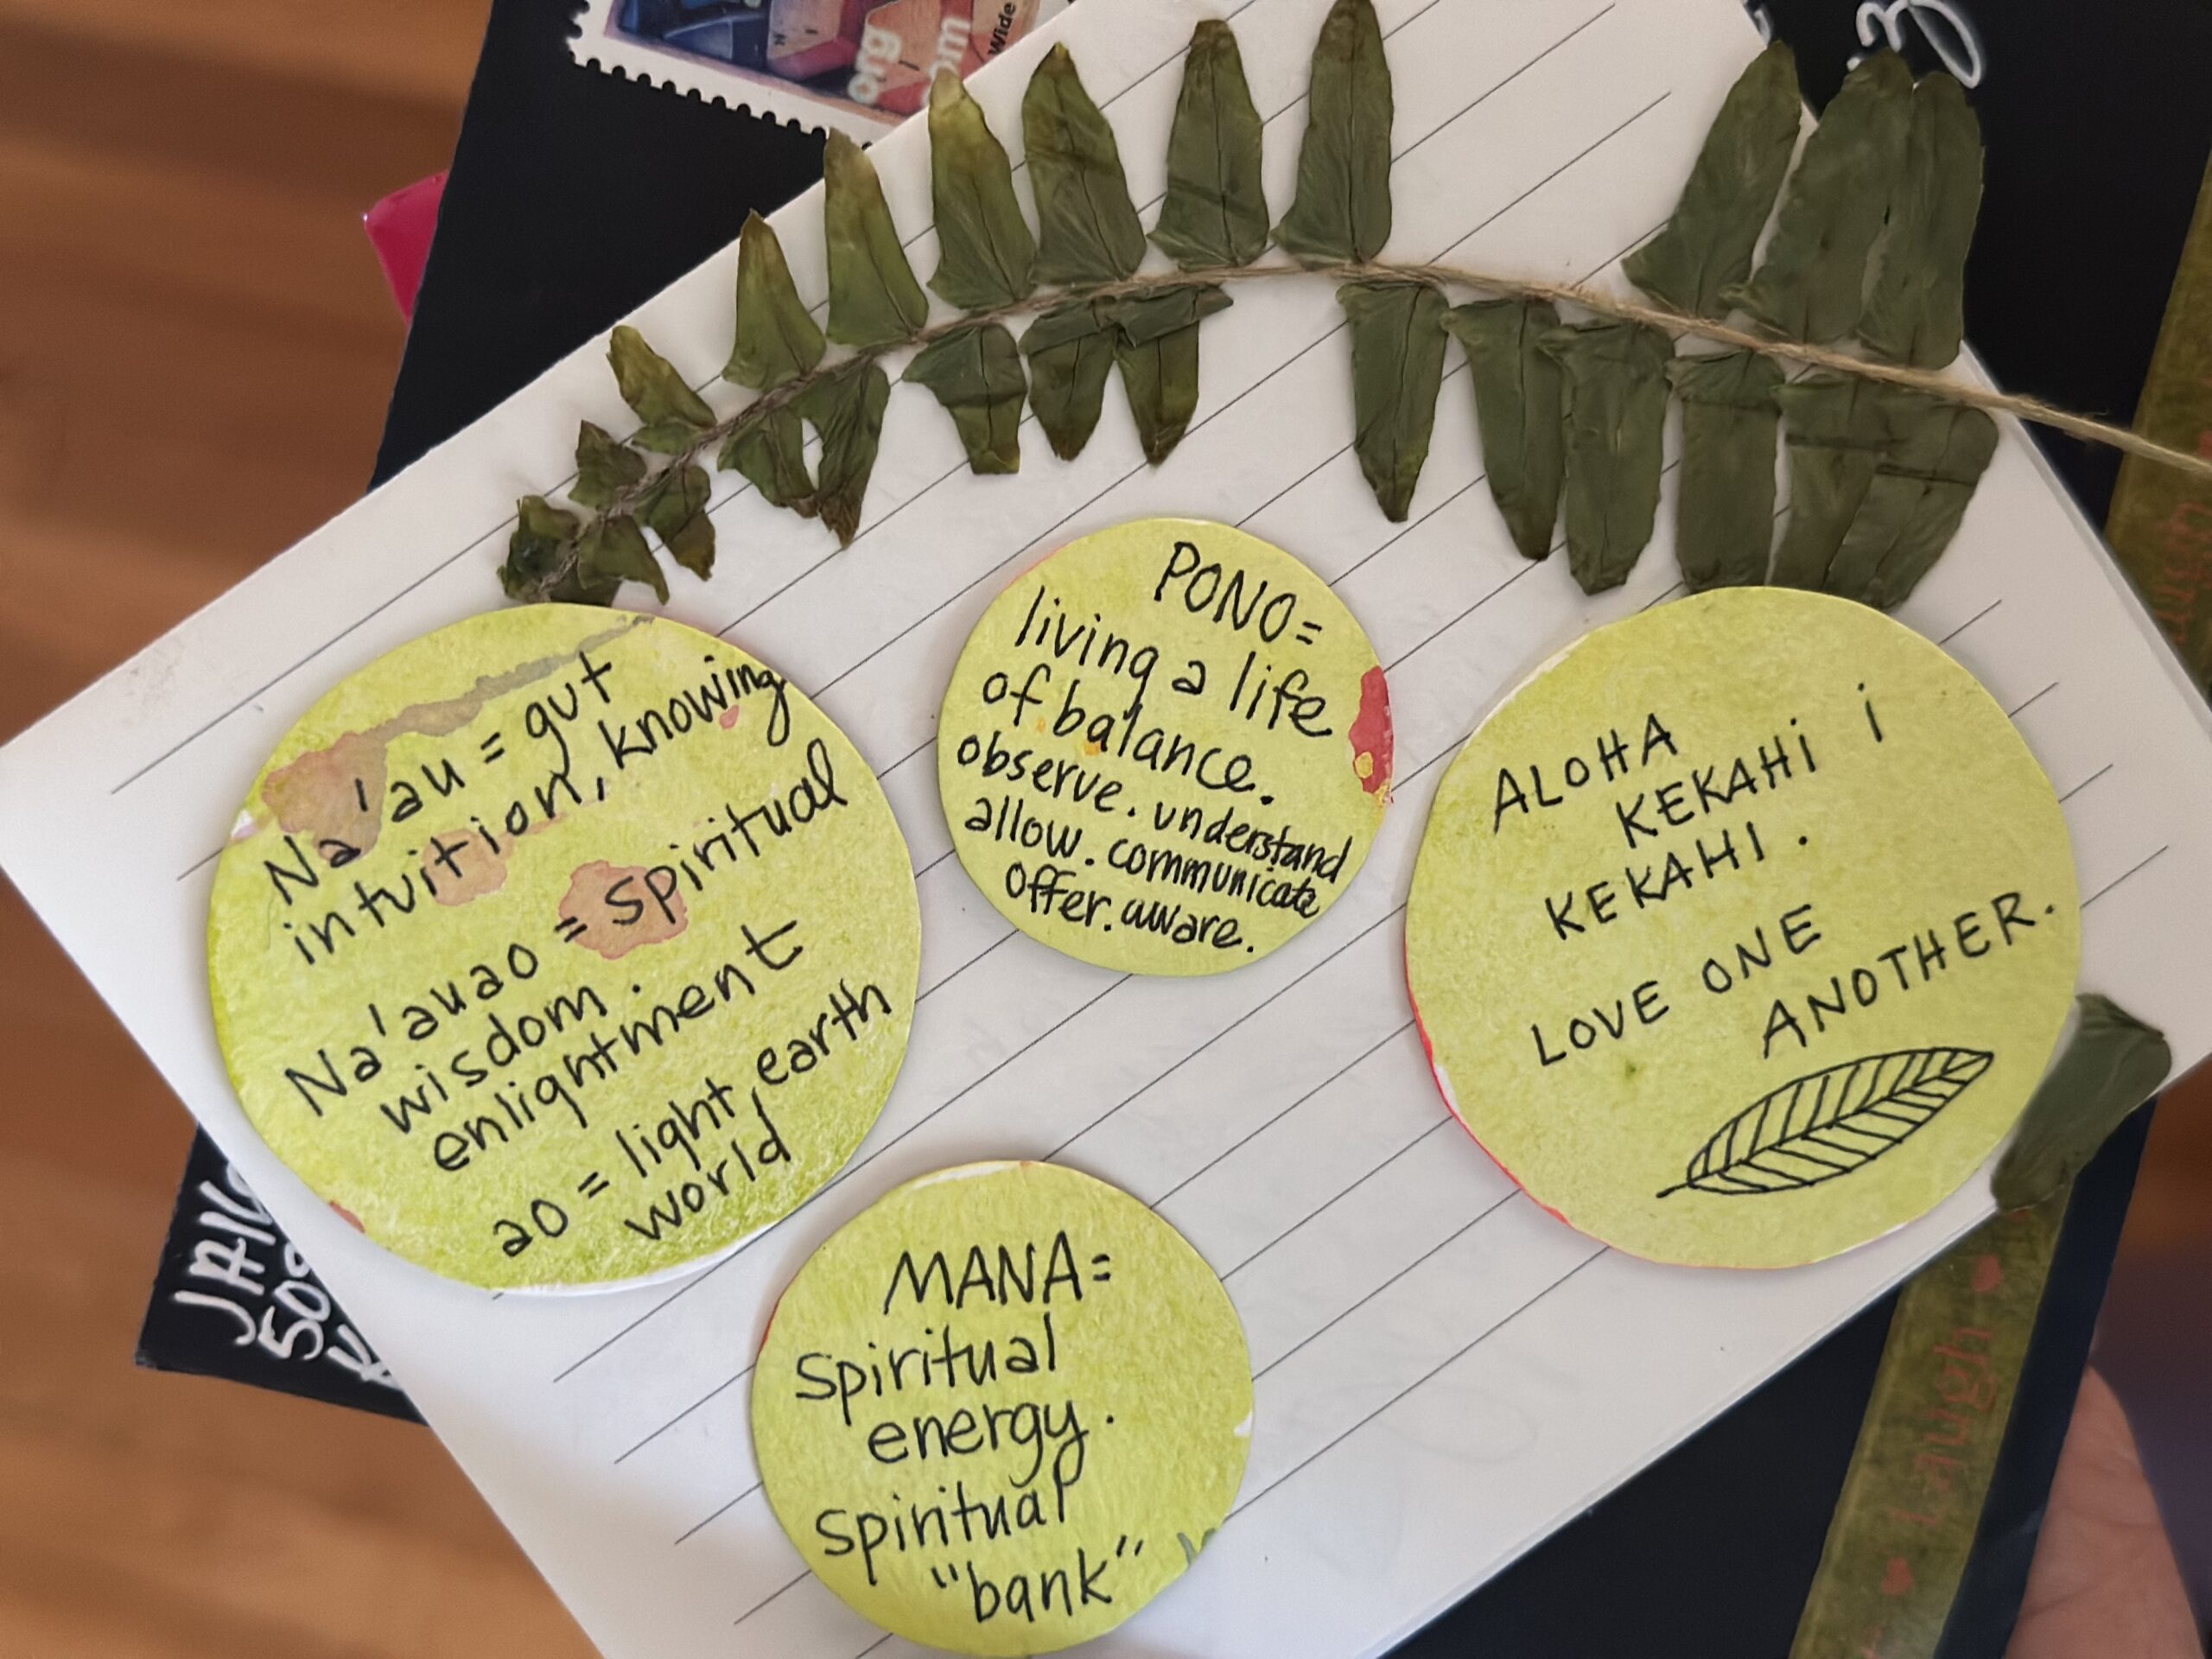 org
om
Wide
3
Na'au = gut
intuition, knowing
Na'auao = spiritual
wisdom.
enlightment
ao = light, earth
world
PONO=
living a life
of balance.
observe. understand
allow. communicate
offer. aware.
ALOHA
KEKAHI i
KEKAHI.
LOVE ONE
ANOTHER.
MANA=
Spiritual
energy.
Spiritual
"bank"
Laugh